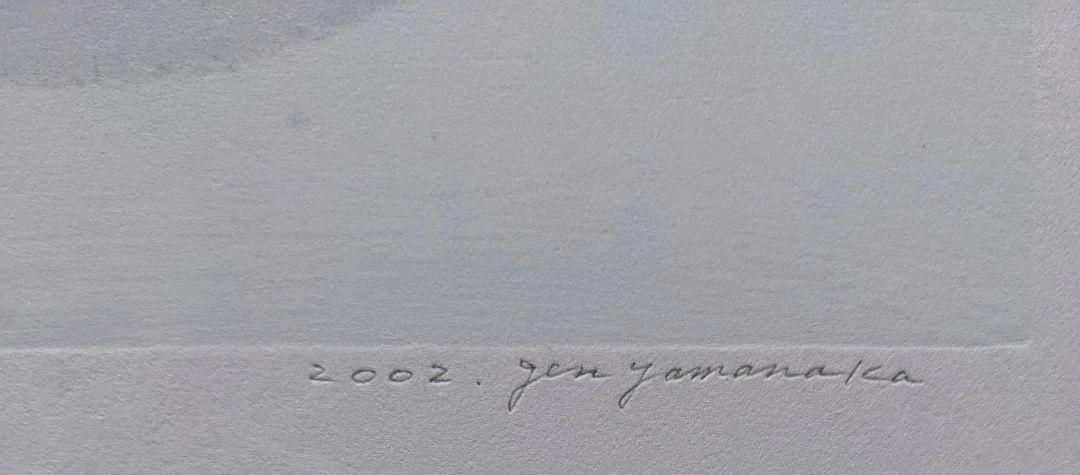 2002. gen yamanaka